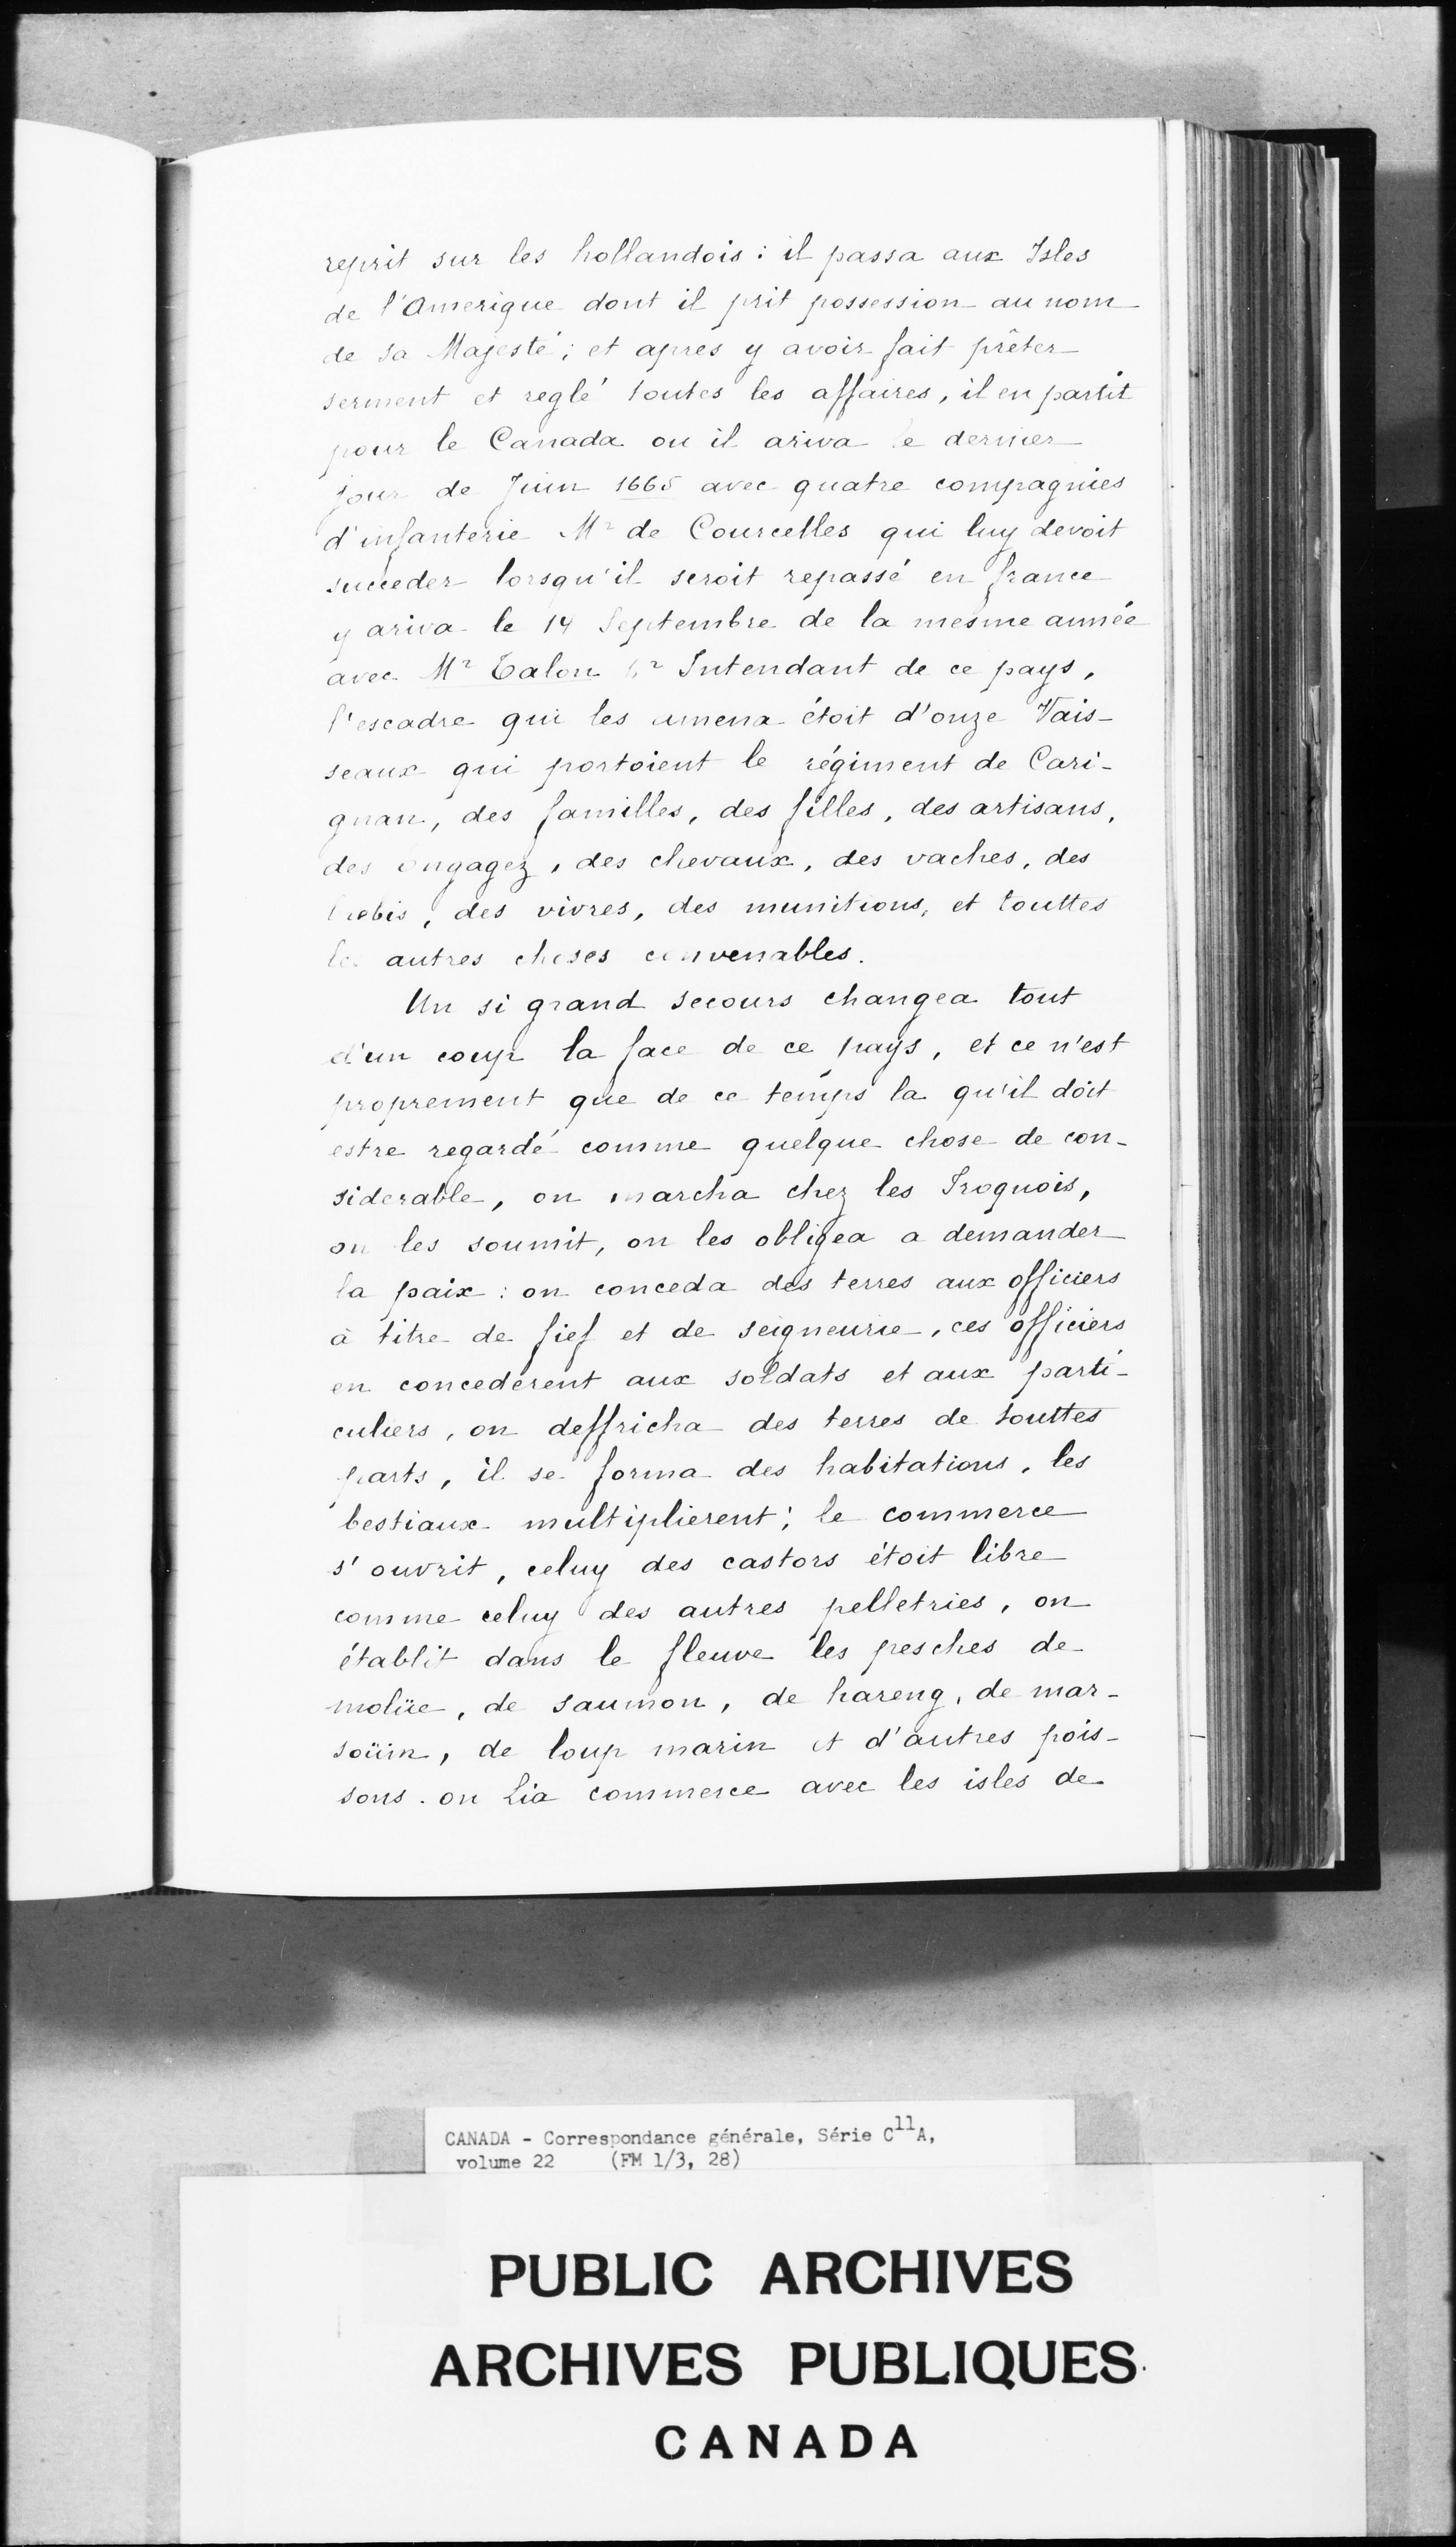 reprit sur les hollandois : il passa aux Isles
de l'Amerique dont il prit possession au nom
de sa Majesté ; et apres y avoir fait prêter
serment et reglé toutes les affaires, il en partit
pour le Canada ou il ariva le dernier
jour de Juin 1665 avec quatre compagnies
d'infanterie Mr de Courcelles qui luy devoit
succeder lorsqu'il seroit repassé en france
y ariva le 14 Septembre de la mesme année
avec Mr Talon Intendant de ce pays,
l'escadre qui les amena étoit d'onze Vais-
seaux qui portoient le régiment de Cari-
gnan, des familles, des filles, des artisans,
des engagez, des chevaux, des vaches, des
brebis, des vivres, des munitions, et touttes
les autres choses convenables.
Un si grand secours changea tout
d'un coup la face de ce pays, et ce n'est
proprement que de ce temps la qu'il doit
estre regardé comme quelque chose de con-
siderable, on marcha chez les Iroquois,
on les soumit, on les obligea a demander
la paix : on conceda des terres aux officiers
à titre de fief et de seigneurie, ces officiers
en concedérent aux soldats et aux parti-
culiers, on deffricha des terres de touttes
parts, il se forma des habitations, les
bestiaux multiplierent ; le commerce
s'ouvrit, celuy des castors étoit libre
comme celuy des autres pelletries, on
établit dans le fleuve les pesches de
molüe, de saumon, de hareng, de mar-
soüin, de loup marin et d'autres pois-
sons. on Lia commerce avec les isles de
CANADA - Correspondance générale, Série C11A,
volume 22 (FM 1/3, 28)
PUBLIC ARCHIVES
ARCHIVES PUBLIQUES
CANADA